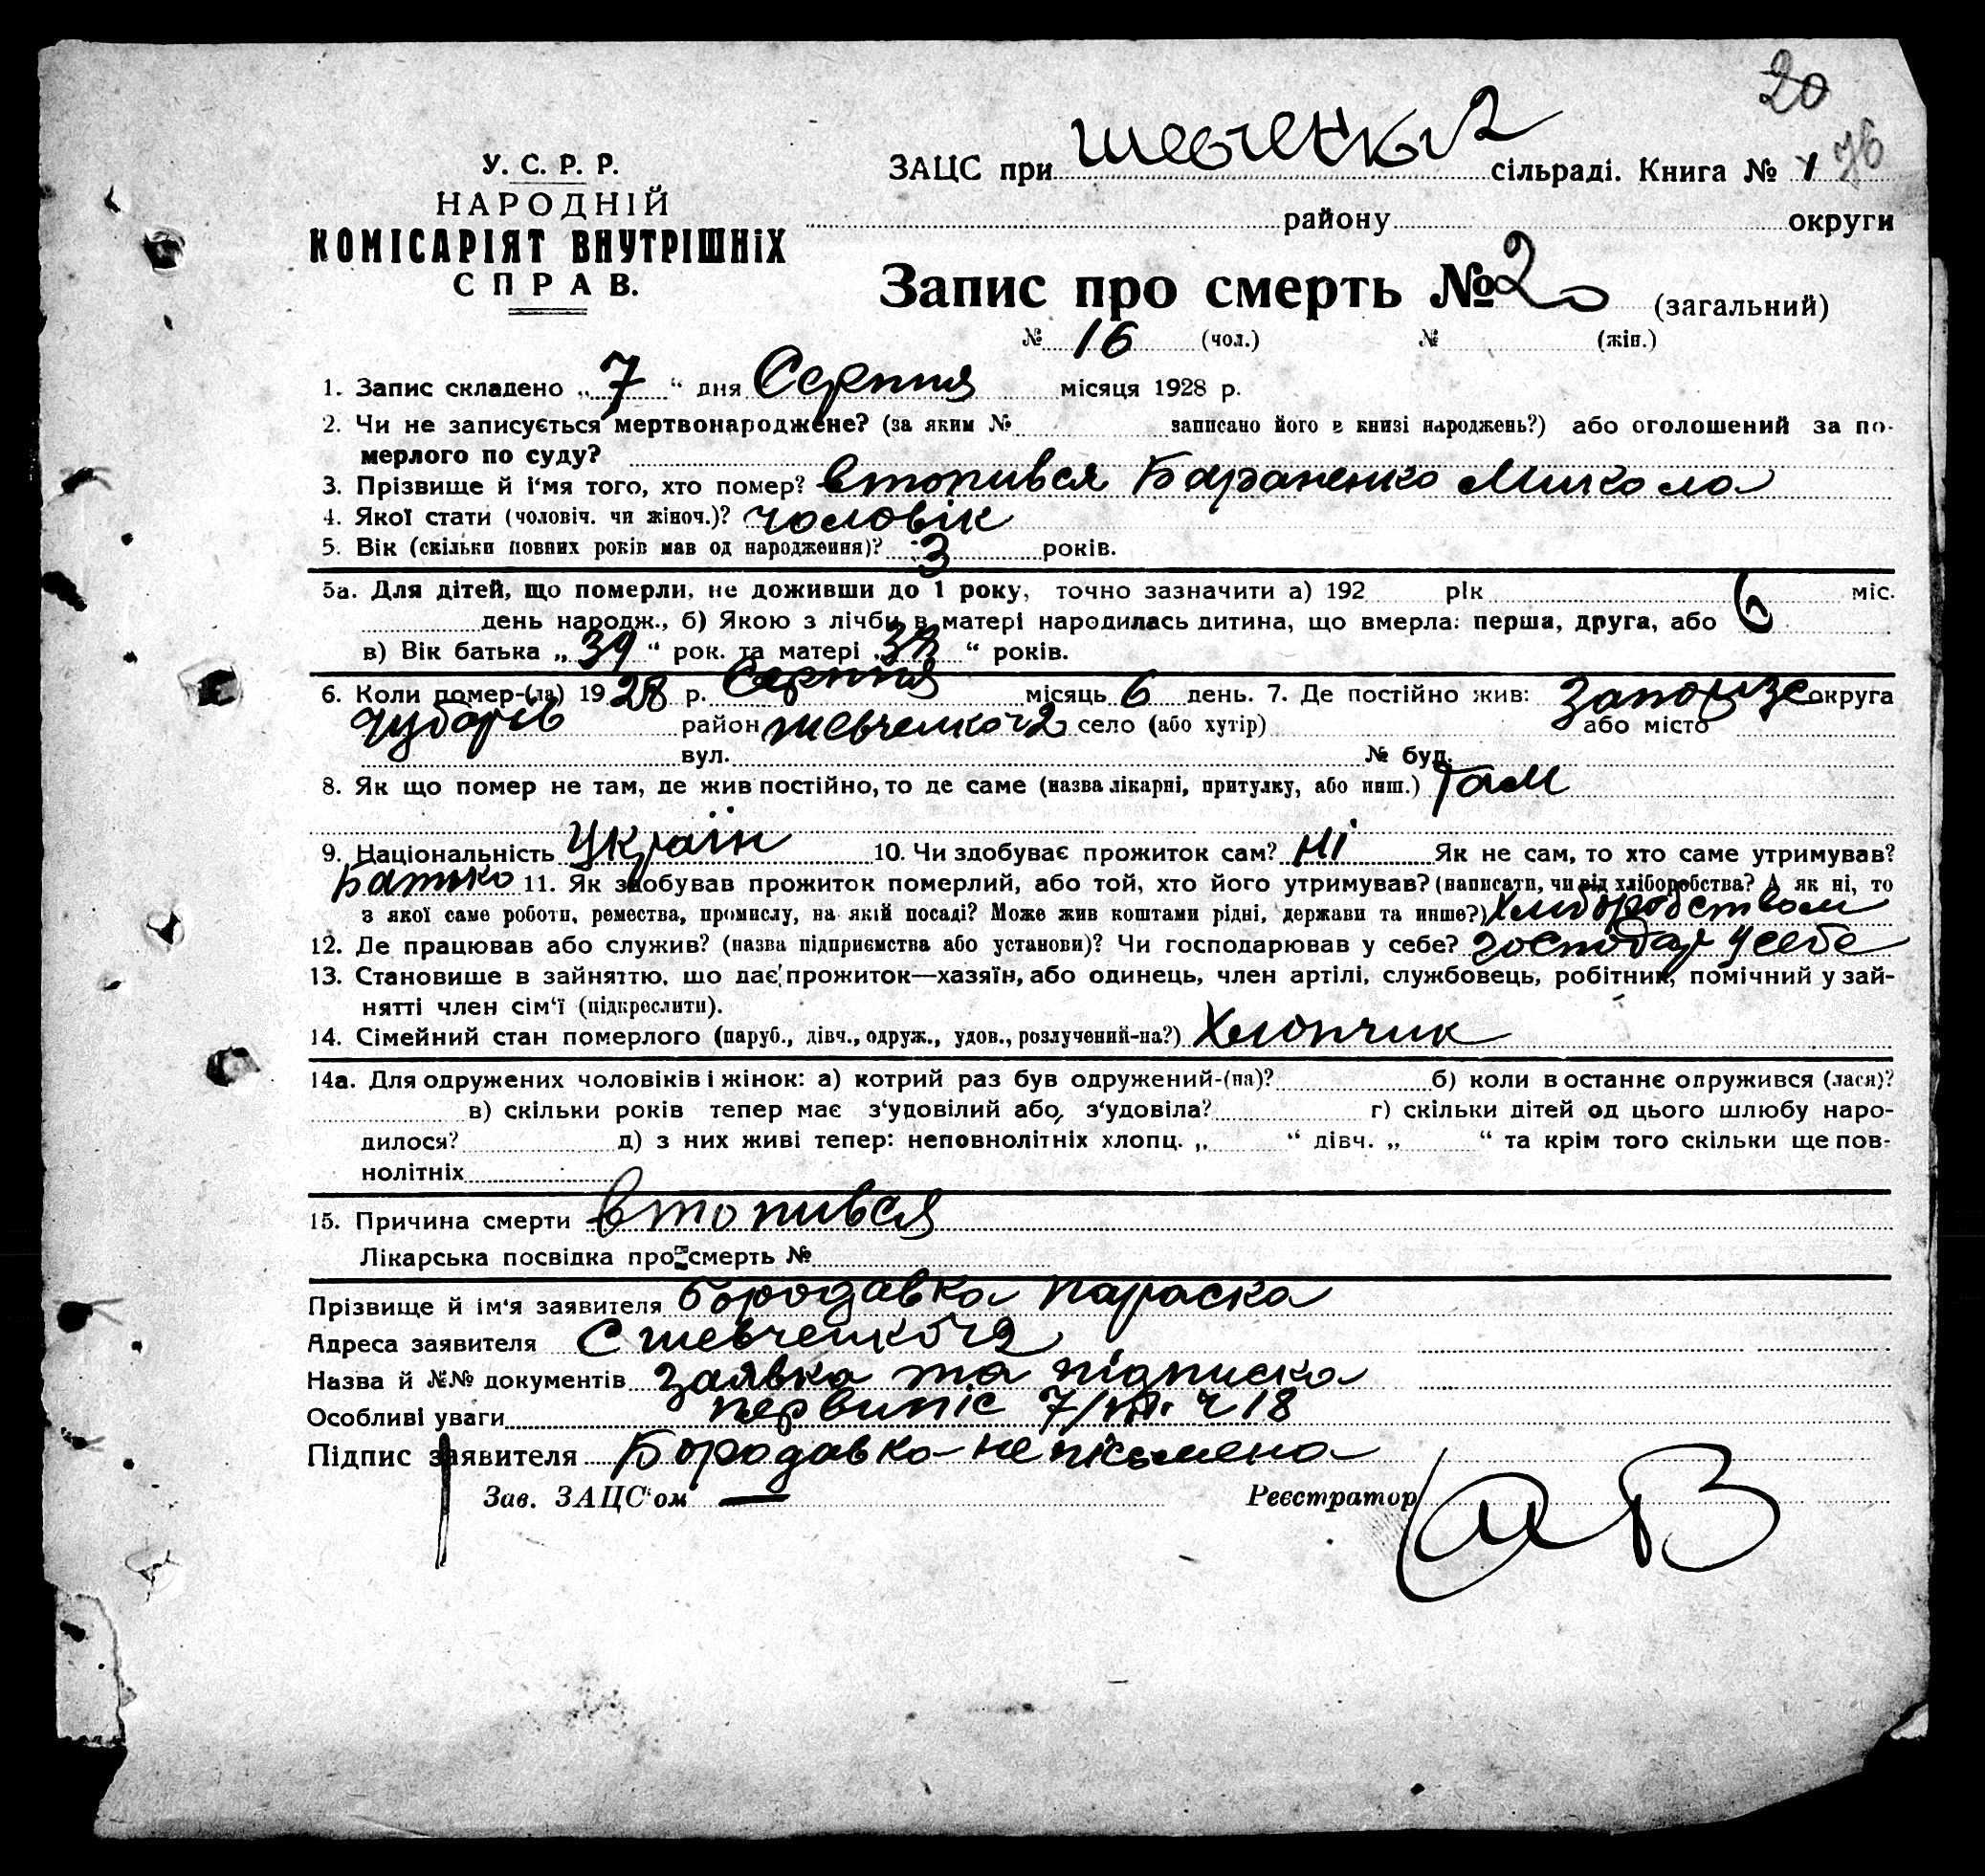 20
У. С. Р. Р.
НАРОДНІЙ
КОМІСАРІЯТ ВНУТРІШНІХ
СПРАВ.
ЗАЦС при Шевченків2 сільраді. Книга № 1 76
району округи
Запис про смерть № 20 (загальний)
№ 16 (чол.) № (жін.)
1. Запис складено „ 7 “ дня Серпня місяця 1928 р.
2. Чи не записується мертвонароджене? (за яким № записано його в книзі народжень?) або оголошений за по-
мерлого по суду?
3. Прізвище й і'мя того, хто помер? втопився Бараненко Микола
4. Якої стати (чоловіч. чи жіноч.)? чоловік
5. Вік (скільки повних років мав од народження)? 3 років.
5а. Для дітей, що померли, не доживши до 1 року, точно зазначити а) 192 рік міс.
день народж., б) Якою з лічби в матері народилась дитина, що вмерла: перша, друга, або 6
в) Вік батька „ 39 “ рок. та матері „ “ років.
6. Коли помер-(ла) 1928 р. Серпня місяць 6 день. 7. Де постійно жив: Запоризс округа
Чубарів район село (або хутір) або місто
вул. № буд.
8. Як що помер не там, де жив постійно, то де саме (назва лікарні, притулку, або инш.) Там
9. Національність Україн 10. Чи здобуває прожиток сам? Ні Як не сам, то хто саме утримував?
Батько 11. Як здобував прожиток померлий, або той, хто його утримував? (написати, чи від хліборобства? А як ні, то
з якої саме роботи, ремества, промислу, на якій посаді? Може жив коштами рідні, держави та инше?) Хліборобством
12. Де працював або служив? (назва підприємства або установи)? Чи господарював у себе? господар у себе
13. Становище в зайняттю, що дає прожиток—хазяїн, або одинець, член артілі, службовець, робітник, помічний у зай-
нятті член сім'ї (підкреслити).
14. Сімейний стан померлого (паруб., дівч., одруж., удов., розлучений-на?) Хлопчик
14а. Для одружених чоловіків і жінок: а) котрий раз був одружений-(на)? б) коли в останнє одружився (лася)?
в) скільки років тепер має з'удовілий або, з'удовіла? г) скільки дітей од цього шлюбу наро-
дилося? д) з них живі тепер: неповнолітніх хлопц. „ “ дівч. „ “ та крім того скільки ще пов-
нолітніх
15. Причина смерти втопився
Лікарська посвідка про смерть №
Прізвище й ім'я заявителя Бородавка Параска
Адреса заявителя С
Назва й №№ документів заявка та підписка
Особливі уваги 7/ ч 18
Підпис заявителя Бородавка неписьмена
Зав. ЗАЦС'ом — Реєстратор